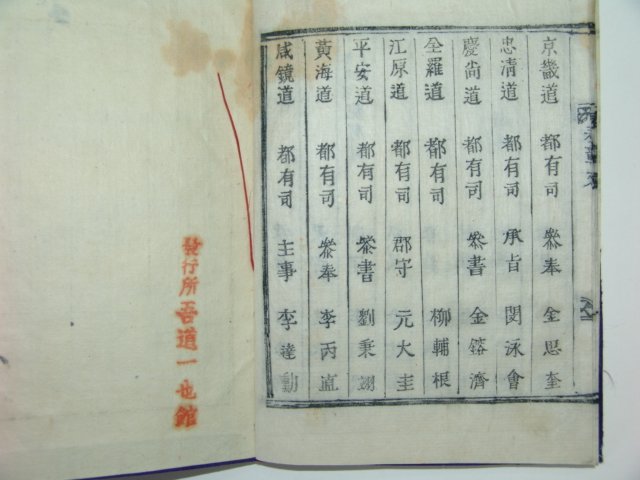 京畿道 都有司 叅奉 金思奎
忠清道 都有司 承旨 閔泳會
慶尙道 都有司 叅書 金鎔濟
全羅道 都有司 柳輔根
江原道 都有司 郡守 元大圭
平安道 都有司 叅書 劉秉翊
黃海道 都有司 叅奉 李丙直
咸鏡道 都有司 主事 李達勳
發行所 吾道一也館